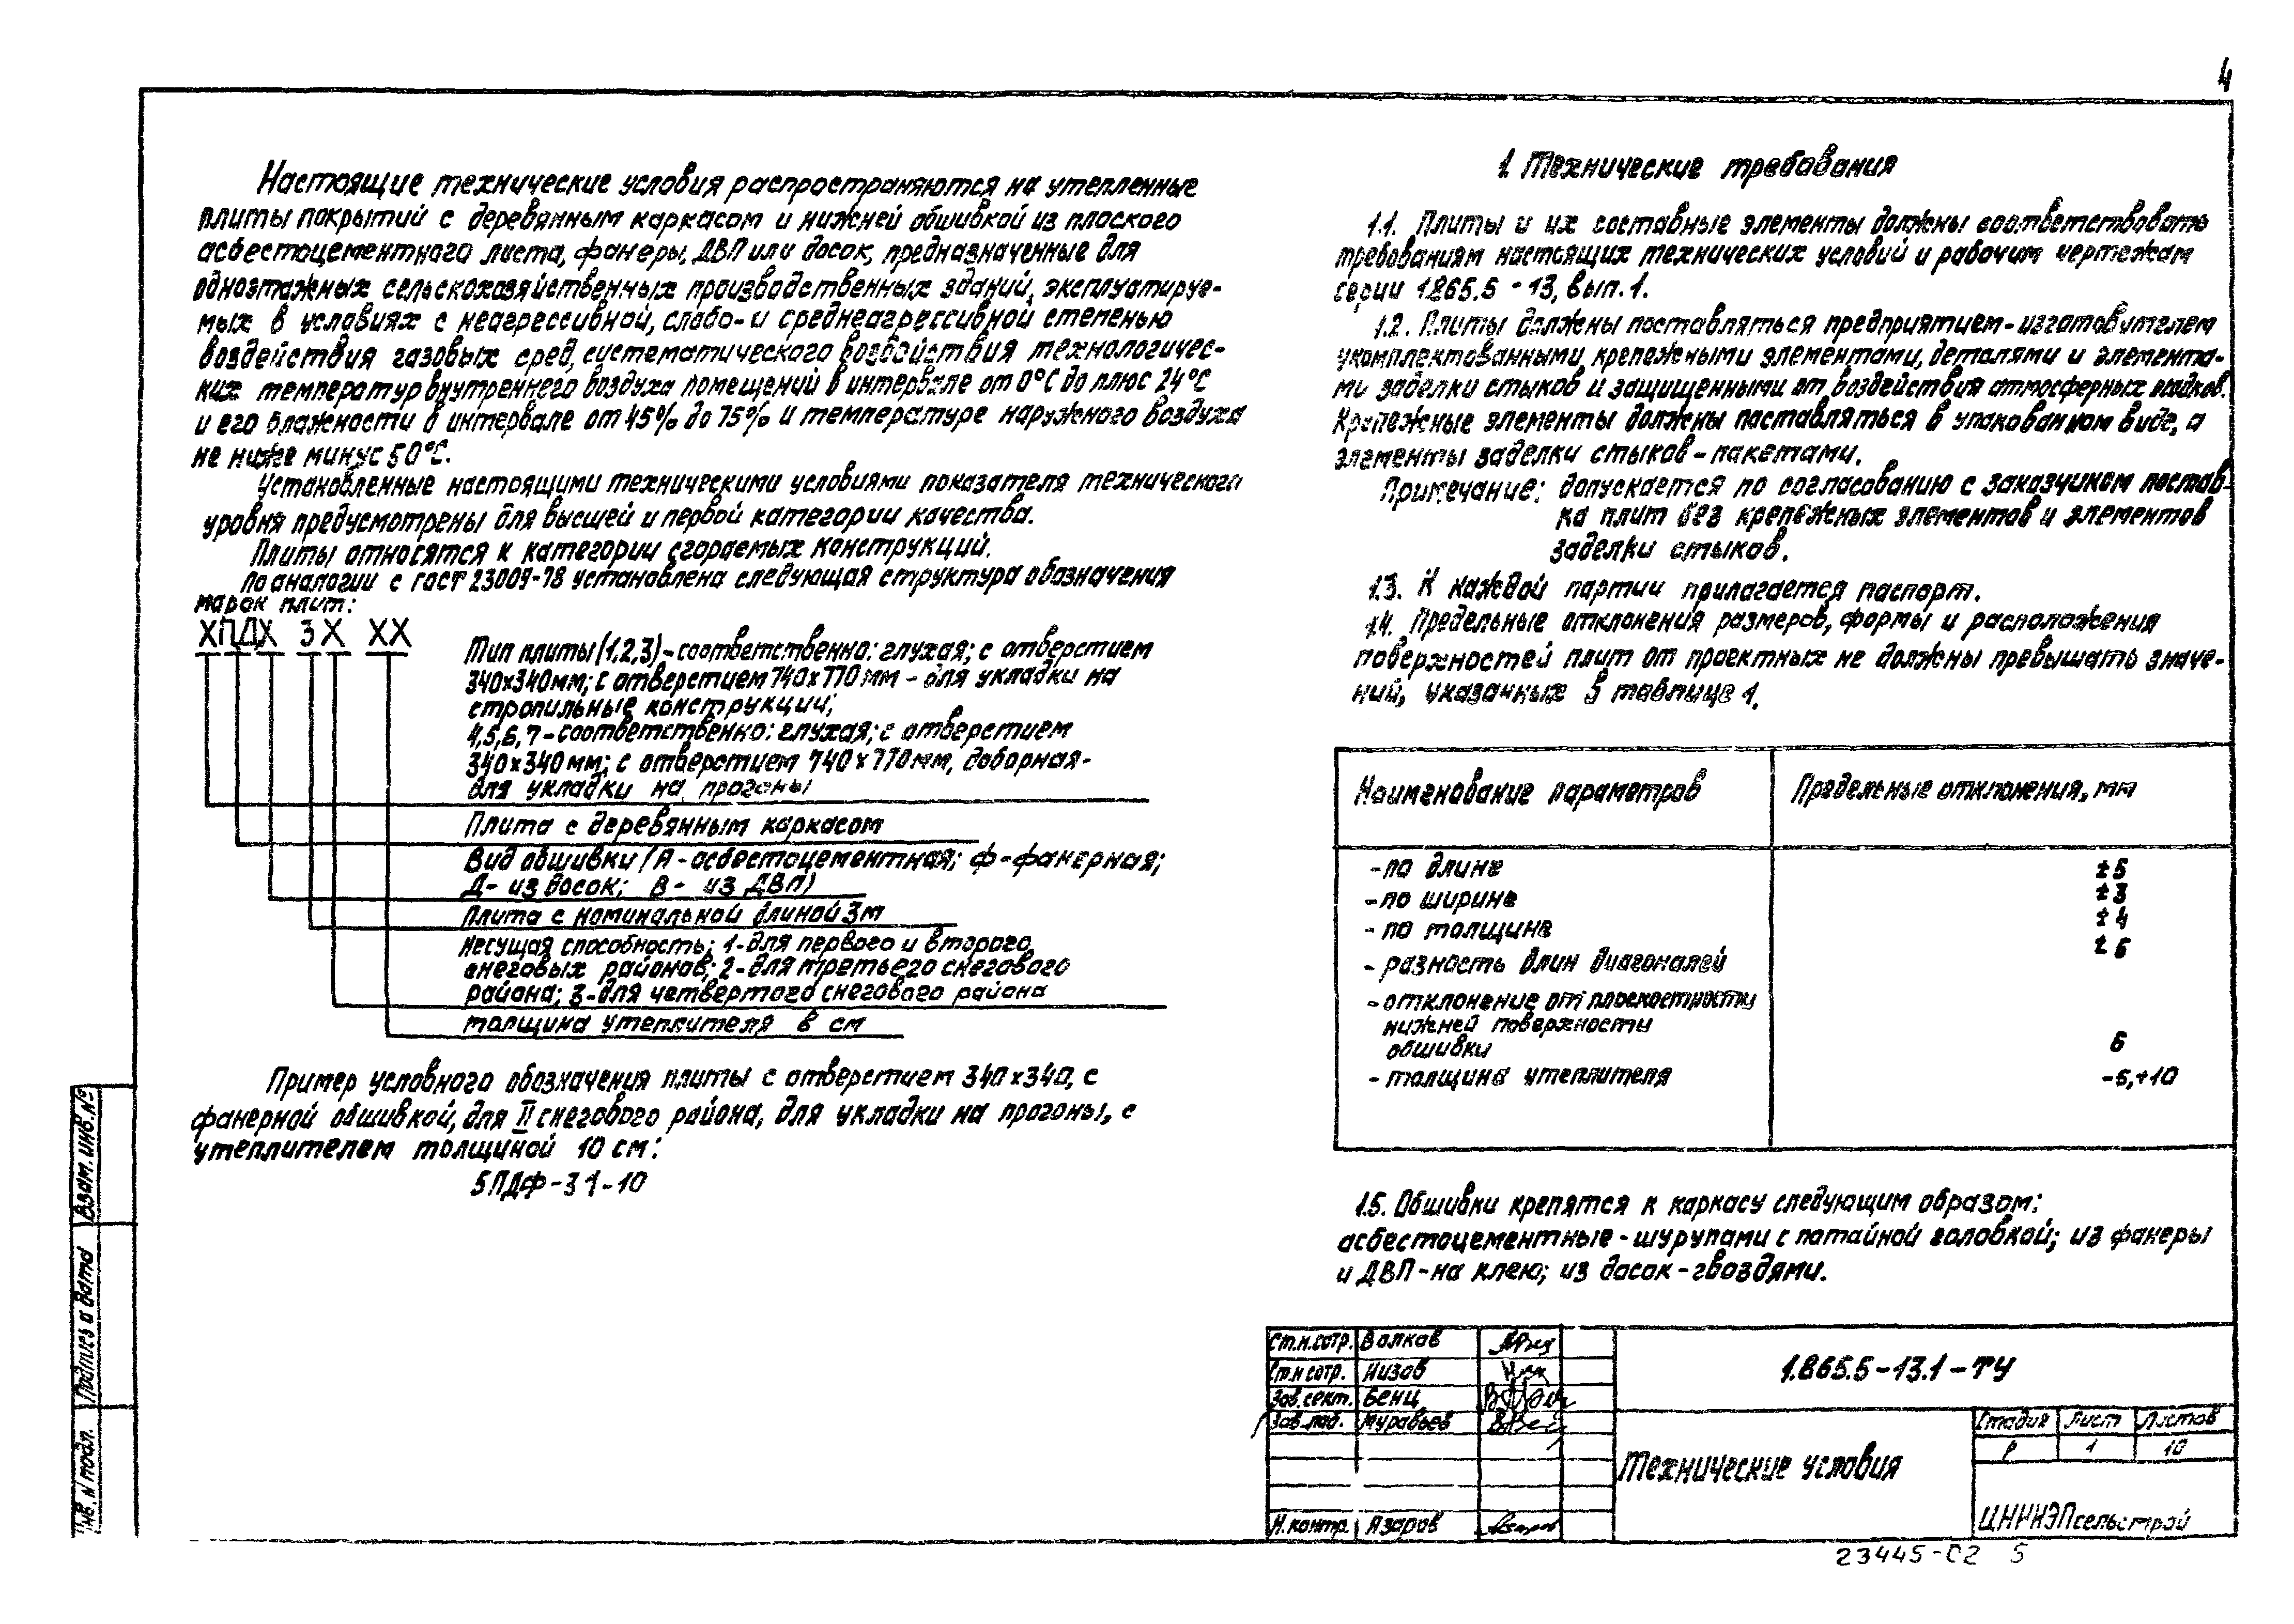 4
Настоящие технические условия распространяются на утепленные
плиты покрытий с деревянным каркасом и нижней обшивкой из плоского
асбестоцементного листа, фанеры, ДВП или досок, предназначенные для
одноэтажных сельскохозяйственных производственных зданий, эксплуатируе-
мых в условиях с неагрессивной, слабо- и среднеагрессивной степенью
воздействия газовых сред, систематического воздействия технологичес-
ких температур внутреннего воздуха помещений в интервале от 0°С до плюс 24°С
и его влажности в интервале от 45% до 75% и температуре наружного воздуха
не ниже минус 50°С.
Установленные настоящими техническими условиями показателя технического
уровня предусмотрены для высшей и первой категории качества.
Плиты относятся к категории сгораемых конструкций.
По аналогии с гост 23009-78 установлена следующая структура обозначения
марок плит:
ХПДХ 3Х ХХ
Тип плиты (1,2,3)-соответственно: глухая; с отверстием
340х340мм; с отверстием 740х770мм - для укладки на
стропильные конструкции;
4,5,6,7-соответственно: глухая; с отверстием
340х340мм; с отверстием 740х770мм, доборная-
для укладки на прогоны
Плита с деревянным каркасом
Вид обшивки (А-асбестоцементная; Ф-фанерная;
Д- из досок; В- из ДВП)
Плита с номинальной длиной 3м
Несущая способность; 1-для первого и второго
снеговых районов; 2-для третьего снегового
района; 3-для четвертого снегового района
толщина утеплителя в см
Пример условного обозначения плиты с отверстием 340х340, с
фанерной обшивкой, для II снегового района, для укладки на прогоны, с
утеплителем толщиной 10 см:
5ПДФ-31-10
1. Технические требования
1.1. Плиты и их составные элементы должны соответствовать
требованиям настоящих технических условий и рабочим чертежам
серии 1.865.5-13, вып.1.
1.2. Плиты должны поставляться предприятием-изготовителем
укомплектованными крепежными элементами, деталями и элемента-
ми заделки стыков и защищенными от воздействия атмосферных осадков.
Крепежные элементы должны поставляться в упакованном виде, а
элементы заделки стыков-пакетами.
Примечание: допускается по согласованию с заказчиком постав-
ка плит без крепежных элементов и элементов
заделки стыков.
1.3. К каждой партии прилагается паспорт.
1.4. Предельные отклонения размеров, формы и расположения
поверхностей плит от проектных не должны превышать значе-
ний, указанных в таблице 1.
Наименование параметров Предельные отклонения, мм
-по длине ±5
-по ширине ±3
-по толщине ±4
-разность длин диагоналей ±5
-отклонение от плоскостности
нижней поверхности
обшивки 6
-толщина утеплителя -5,+10
1.5. Обшивки крепятся к каркасу следующим образом:
асбестоцементные-шурупами с потайной головкой; из фанеры
и ДВП-на клею; из досок-гвоздями.
Ст.н.сотр. Волков
Ст.н сотр. Низов
Зав.сект. Бенц
Зав.лаб. Муравьев
Н.контр. Азаров
1.865.5-13.1-ТУ
Технические условия
Стадия Лист Листов
Р 1 10
ЦНИИЭПсельстрой
Взам. инв. №
Подпись и дата
Инв. N подл.
23445-02 5